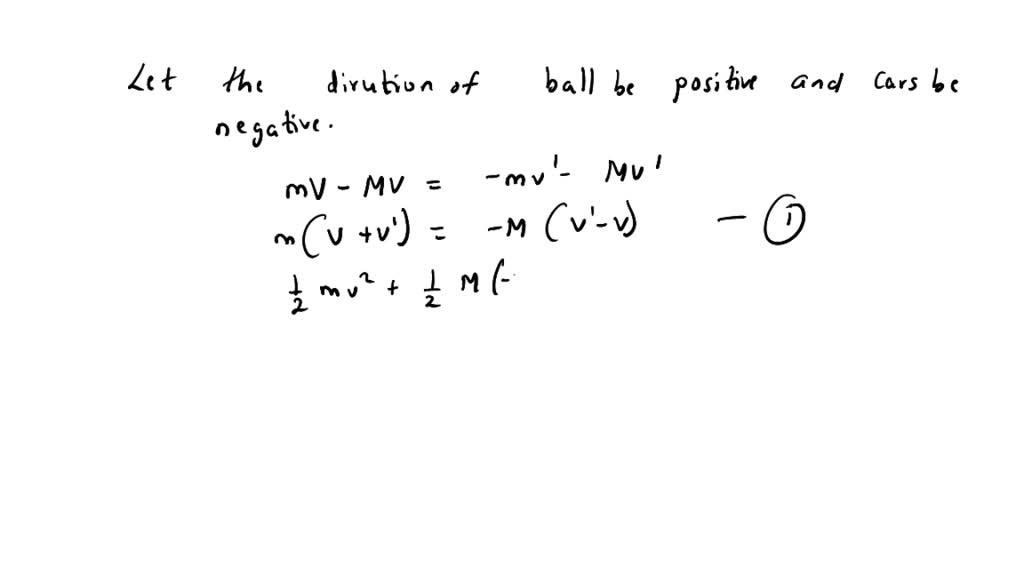 Let the dirution of ball be positive and cars be
negative.
mV - MV = -mv' - Mv'
m(v + v') = -M (v' - v) — ①
1/2 mv² + 1/2 M (-